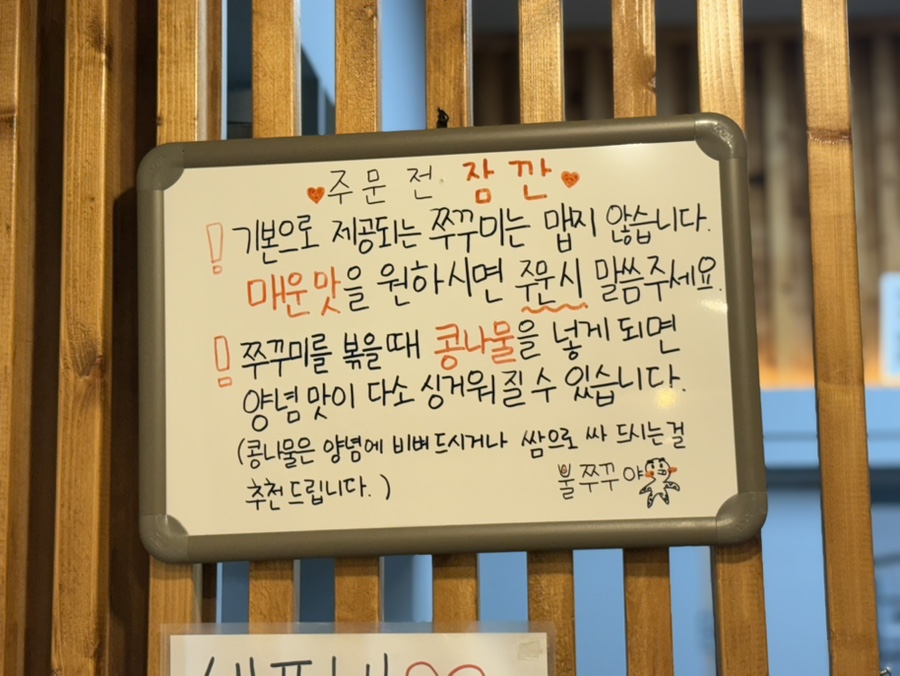 ♥주문 전 잠깐♥
! 기본으로 제공되는 쭈꾸미는 맵지 않습니다.
매운맛을 원하시면 주문시 말씀주세요.
! 쭈꾸미를 볶을때 콩나물을 넣게 되면
양념맛이 다소 싱거워질 수 있습니다.
(콩나물은 양념에 비벼드시거나 쌈으로 싸 드시는걸
추천드립니다.)
불쭈꾸야